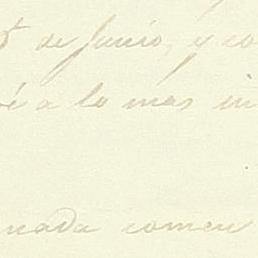 de Junio, y co
é a lo mas in
nada comen